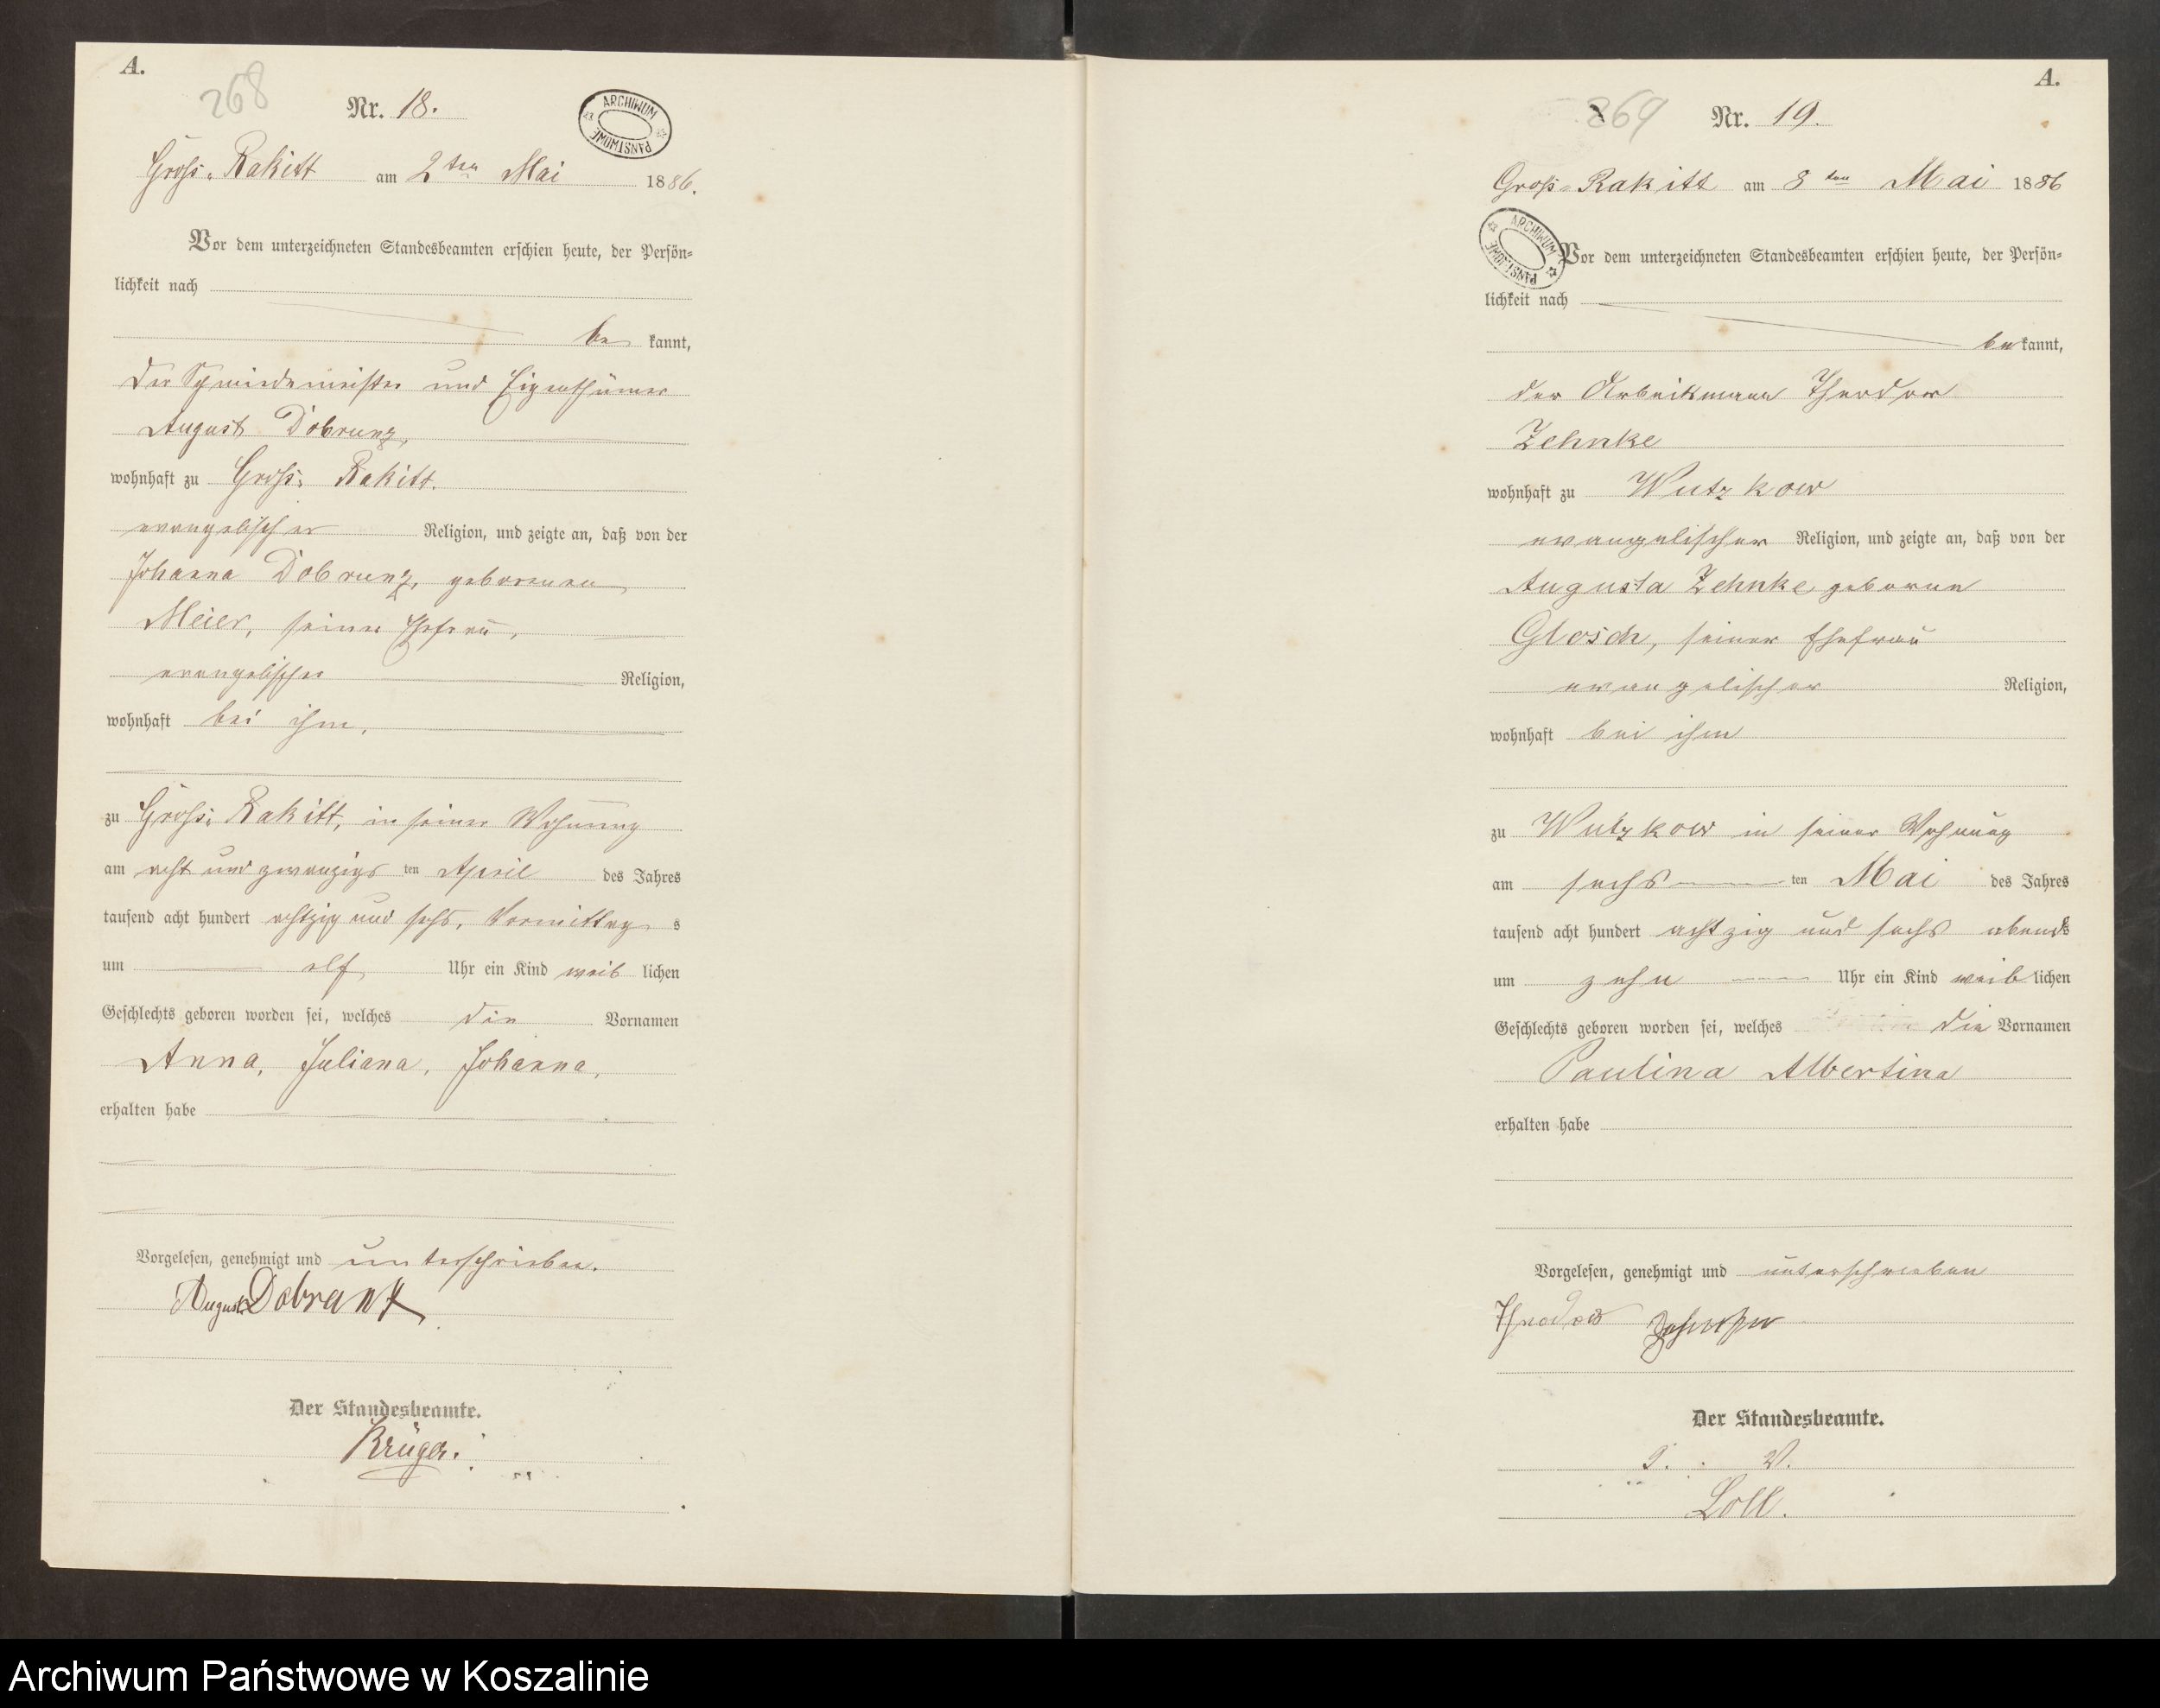 A.
268
Nr. 18.
ARCHIWUM PAŃSTWOWE
Gross-Rakitt am 2ten Mai 1886.
Vor dem unterzeichneten Standesbeamten erschien heute, der Persön-
lichkeit nach
be kannt,
der Schmiedemeister und Eigenthümer
August Dobrunz,
wohnhaft zu Gross-Rakitt.
evangelischer Religion, und zeigte an, daß von der
Johanna Dobrunz, geborenen
Meier, seiner Ehefrau,
evangelischer Religion,
wohnhaft bei ihm,
zu Gross-Rakitt, in seiner Wohnung
am acht und zwanzigs ten April des Jahres
tausend acht hundert achtzig und sechs, Vormittag s
um elf Uhr ein Kind weib lichen
Geschlechts geboren worden sei, welches die Vornamen
Anna, Juliana, Johanna,
erhalten habe
Vorgelesen, genehmigt und unterschrieben.
August Dobrunz
Der Standesbeamte.
Krüger.
A.
269
Nr. 19.
Groß-Rakitt am 8ten Mai 1886
ARCHIWUM PAŃSTWOWE
Vor dem unterzeichneten Standesbeamten erschien heute, der Persön-
lichkeit nach
be kannt,
der Arbeitsmann Theodor
Zehnke
wohnhaft zu Wutzkow
evangelischer Religion, und zeigte an, daß von der
Augusta Zehnke geborne
Glosch, seiner Ehefrau
evangelischer Religion,
wohnhaft bei ihm
zu Wutzkow in seiner Wohnung
am sechs ten Mai des Jahres
tausend acht hundert achtzig und sechs abends
um zehn Uhr ein Kind weib lichen
Geschlechts geboren worden sei, welches die Vornamen
Paulina Albertina
erhalten habe
Vorgelesen, genehmigt und unterschrieben
Theodor Zehnke
Der Standesbeamte.
I. V.
Loll.
Archiwum Państwowe w Koszalinie